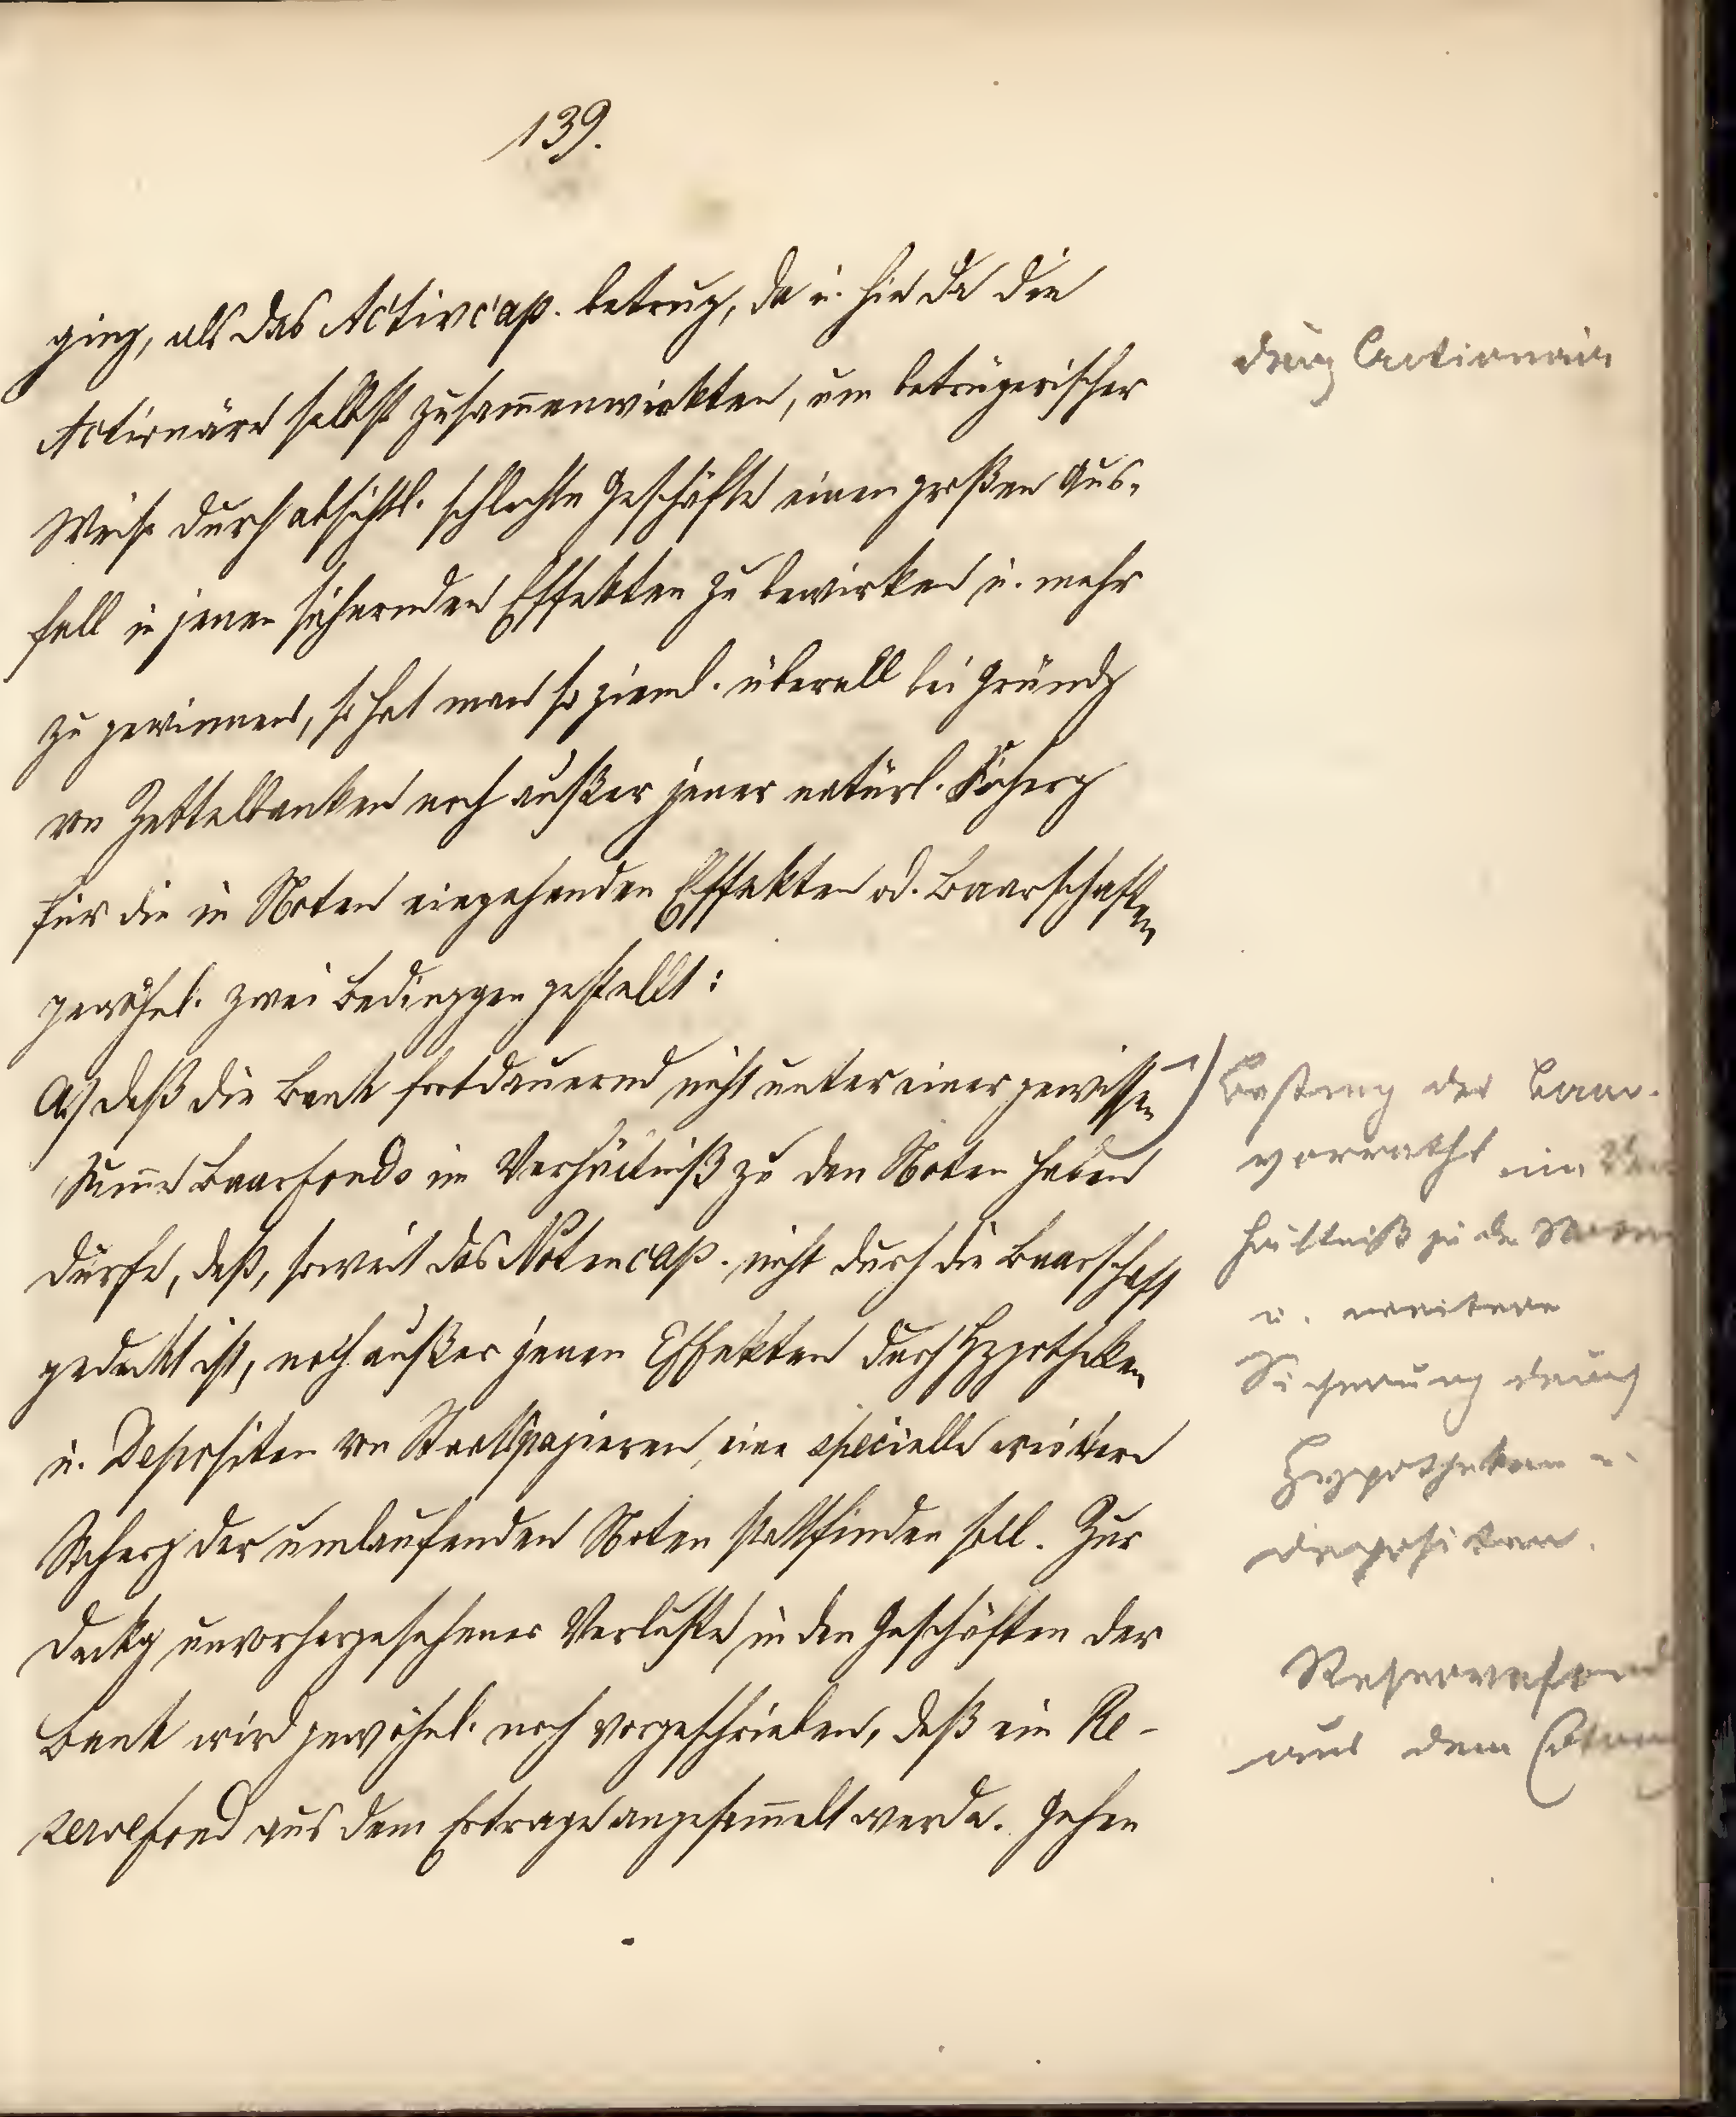 139.
ging, als das Activcap. betrug, da u. hie da die
Actionäre selbst zusam̅enwirkten, um betrügerischer
Weise durch absichtl. schlechte Geschäfte einen großen Aus-
fall in jenen sichernden Effekten zu bewirken u. mehr
zu gewinnen, so hat man so zieml. überall bei Gründg
von Zettelbanken noch außer jener natürl. Sicherg
für die in Noten eingehenden Effekten od. Baarschaften
gewöhnl. zwei Bedinggen gestellt:
A.) daß die Bank fortdauernd nicht unter einer gewissen
Sum̅e Baarfonds im Verhältniß zu den Noten haben
dürfe, daß, soweit das Notencap. nicht durch die Baarschaft
gedeckt ist, noch außer jenen Effekten durch Hypotheken
u. Depositen von Staatspapieren, eine specielle weitere
Sicherg der umlaufenden Noten stattfinden soll. Zur
Deckg unvorhergesehener Verluste in den Geschäften der
Bank wird gewöhnl. noch vorgeschrieben, daß ein Re-
servefond aus dem Ertrage angesam̅elt werde. Gehen
durch Actionair
1) des Baar-
vorraths im Ver
hältniß zu den Noten
u. weitere
Sicherung durch
Hypotheken u.
Depositen.
Reservefond
aus dem